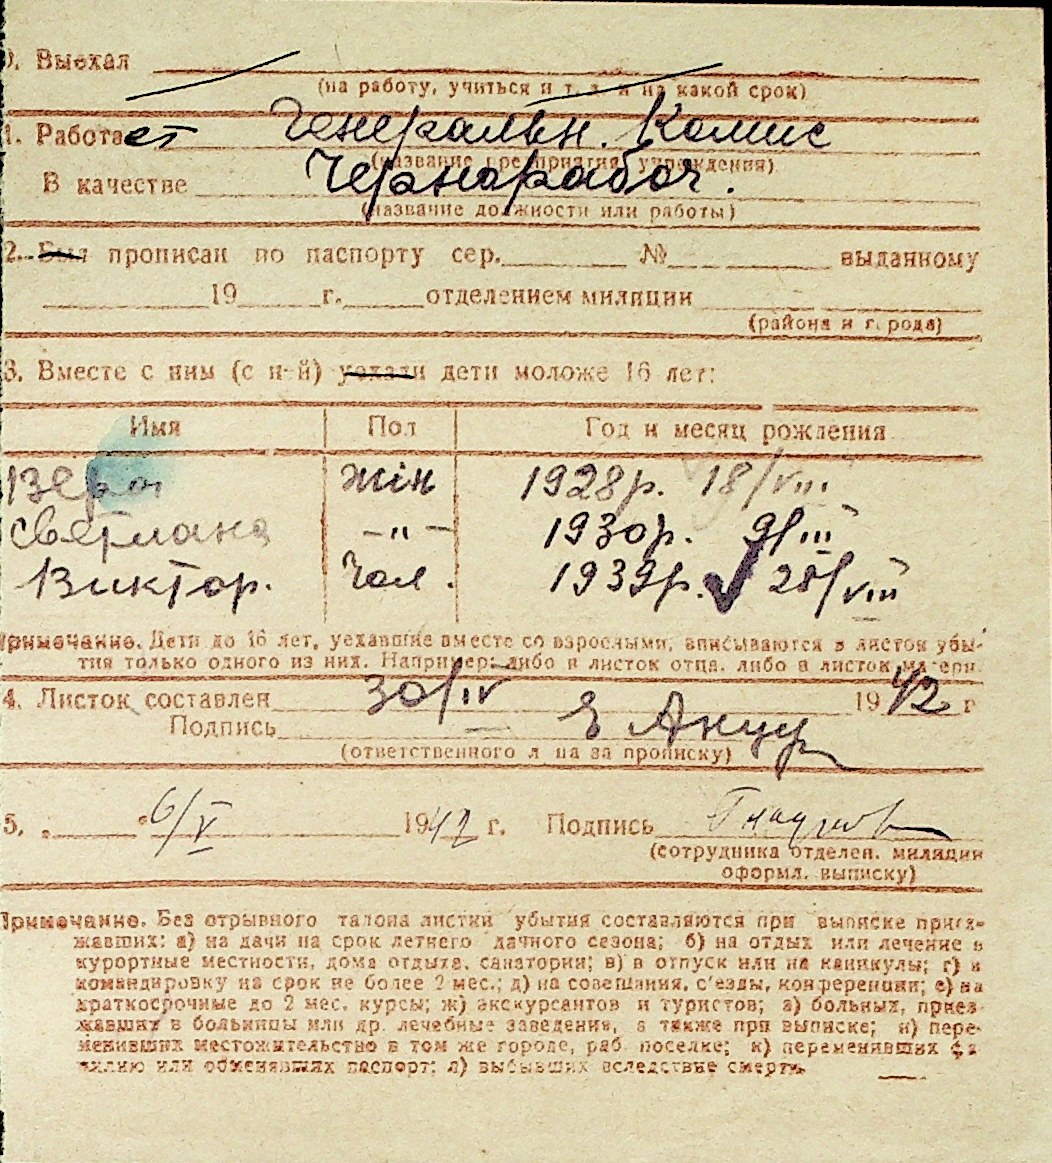 0. Выехал
(на работу, учиться и т. д. и на какой срок)
1. Работает Генеральн. Комис
(название предприятия, учреждения)
В качестве Чернорабоч.
(название должности или работы)
2. Был прописан по паспорту сер. № выданному
19 г. отделением милиции
(района и города)
3. Вместе с ним (с н-й) уехали дети моложе 16 лет:
Имя Пол Год и месяц рождения
Вера жін 1928р. 18/VIII
Светлана -"- 1930р. 9/III
Виктор. Чол. 1939р. 28/VIII
Примечание. Дети до 16 лет, уехавшие вместе со взрослыми, вписываются в листок убы-
тия только одного из них. Например: либо в листок отца, либо в листок матери.
4. Листок составлен 30/IV 1942 г
Подпись
(ответственного лица за прописку)
5. " " 6/V 1942 г. Подпись
(сотрудника отделен. милиции
оформл. выписку)
Примечание. Без отрывного талона листки убытия составляются при выписке приез-
жавших: а) на дачи на срок летнего дачного сезона; б) на отдых или лечение в
курортные местности, дома отдыха, санатории; в) в отпуск или на каникулы; г) в
командировку на срок не более 2 мес.; д) на совещания, с'езды, конференции; е) на
краткосрочные до 2 мес. курсы; ж) экскурсантов и туристов; з) больных, приез-
жавших в больницы или др. лечебные заведения, а также при выписке; и) пере-
менивших местожительство в том же городе, раб. поселке; к) переменивших фа
милию или обменявших паспорт; л) выбывших вследствие смерти.